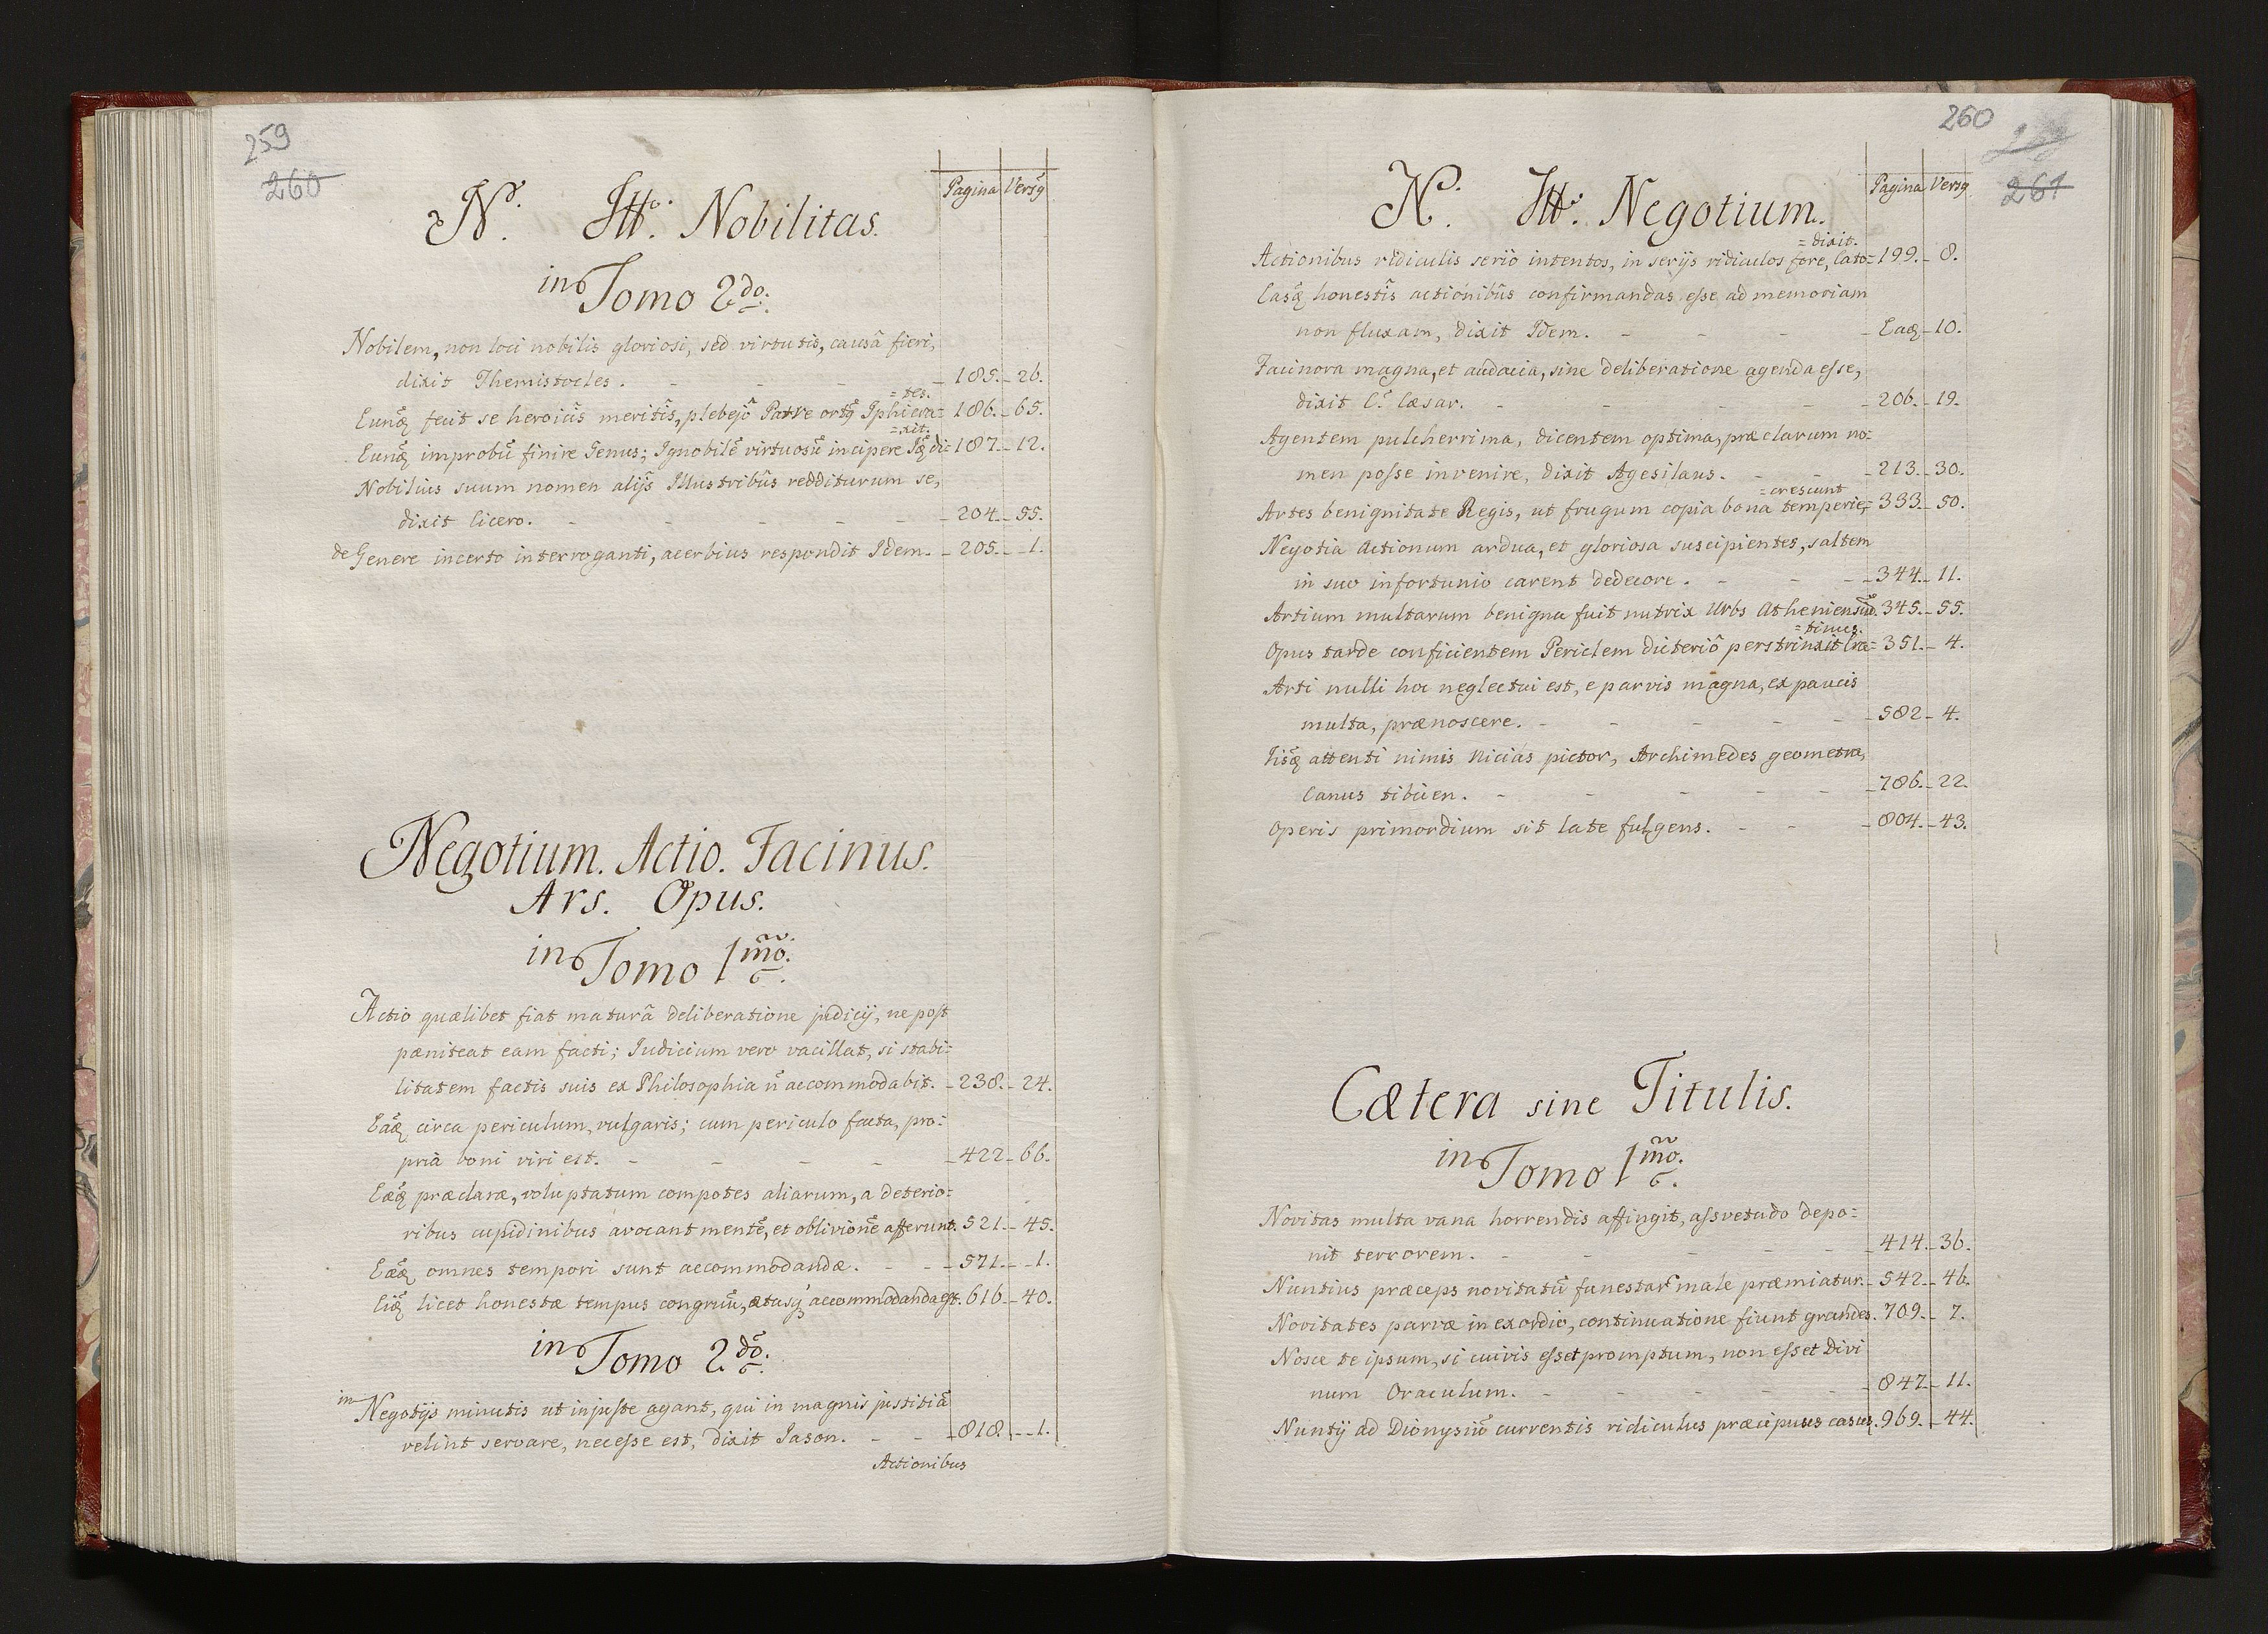 259
260
Pagina Versꝰ
N. Itt. Nobilitas.
in Tomo 2do.
Nobilem, non loci nobilis gloriosi, sed virtutis, causâ fieri,
dixit Themistocles. - - - - 185. - 26.
= tes.
Eunq̃ fecit se heroicis meritis, plebejô Patre ortꝰ Iphicra= 186. - 65.
= xit.
Eunq̃ improbũ finire Genus; Ignobilẽ virtuosũ incipere Iq̃ di= 187. - 12.
Nobilius suum nomen alijs Illustribûs redditurum se,
dixit Cicero. - - - - - 204. - 55.
de Genere incerto interroganti, acerbius respondit Idem. - 205. - 1.
Negotium. Actio. Facinus.
Ars. Opus.
in Tomo 1mõ.
Actio quælibet fiat maturâ deliberatione judicij, ne post
pæniteat eam facti; Iudicium vero vacillat, si stabi=
litatem factis suis ex Philosophia ñ accommodabit. - 238. - 24.
Eaq̃ circa periculum, vulgaris; cum periculo facta, pro=
pria boni viri est. - - - - 422 - 66.
Eæq̃ præclaræ, voluptatum compotes aliarum, a deterio=
ribus cupidinibus avocant mentẽ, et oblivionẽ afferunt. 521. - 45.
Eæq̃ omnes tempori sunt accommodandæ. - - - 571. - 1.
Eiq̃ licet honestæ tempus congruũ, ætasq́ accommodanda est. 616. - 40.
in Tomo 2dõ.
in Negotijs minutis ut injuste agant, qui in magnis justitiã
velint servare, necesse est, dixit Iason. - - 818. - 1.
Actionibus
260
261
Pagina Versꝰ
N. Itt. Negotium.
= dixit.
Actionibus ridiculis serio intentos, in serijs ridiculos fore, Cato= 199. - 8.
Easq̃ honestis actionibûs confirmandas esse ad memoriam
non fluxam, dixit Idem. - - - - Eaq̃ - 10.
Facinora magna, et audacia, sine deliberatione agenda esse,
dixit C. Cæsar. - - - - - 206. - 19.
Agentem pulcherrima, dicentem optima, præclarum no=
men posse invenire, dixit Agesilaus. - - - 213. - 30.
= crescunt
Artes benignitate Regis, ut frugum copia bona temperie, = 333. - 50.
Negotia Actionum ardua, et gloriosa suscipientes, saltem
in suo infortunio carent dedecore. - - - 344. - 11.
Artium multarum benigna fuit nutrix Urbs Atheniensiũ. 345. - 55.
= tinus.
Opus tarde conficientem Periclem dicteriô perstrinxit Cra= 351. - 4.
Arti nulli hoc neglectui est, e parvis magna, ex paucis
multa, prænoscere. - - - - - 582 - 4.
Hisq̃ attenti nimis Nicias pictor, Archimedes geometra,
Canus tibicen. - - - - - 786. - 22.
Operis primordium sit late fulgens. - - - 804. - 43.
Cætera sine Titulis.
in Tomo 1mõ.
Novitas multa vana horrendis affingit, assvetudo depo=
nit terrorem. - - - - - 414. - 36.
Nuntius præceps novitatũ funestar̃ male præmiatur. - 542 - 46.
Novitates parvæ in exordio, continuatione fiunt grandes. 709. - 7.
Nosce te ipsum, si cuivis esset promptum, non esset Divi
num Oraculum. - - - - - 847. - 11.
Nuntij ad Dionysiũ currentis ridiculus præcipuus casus. 969. - 44.